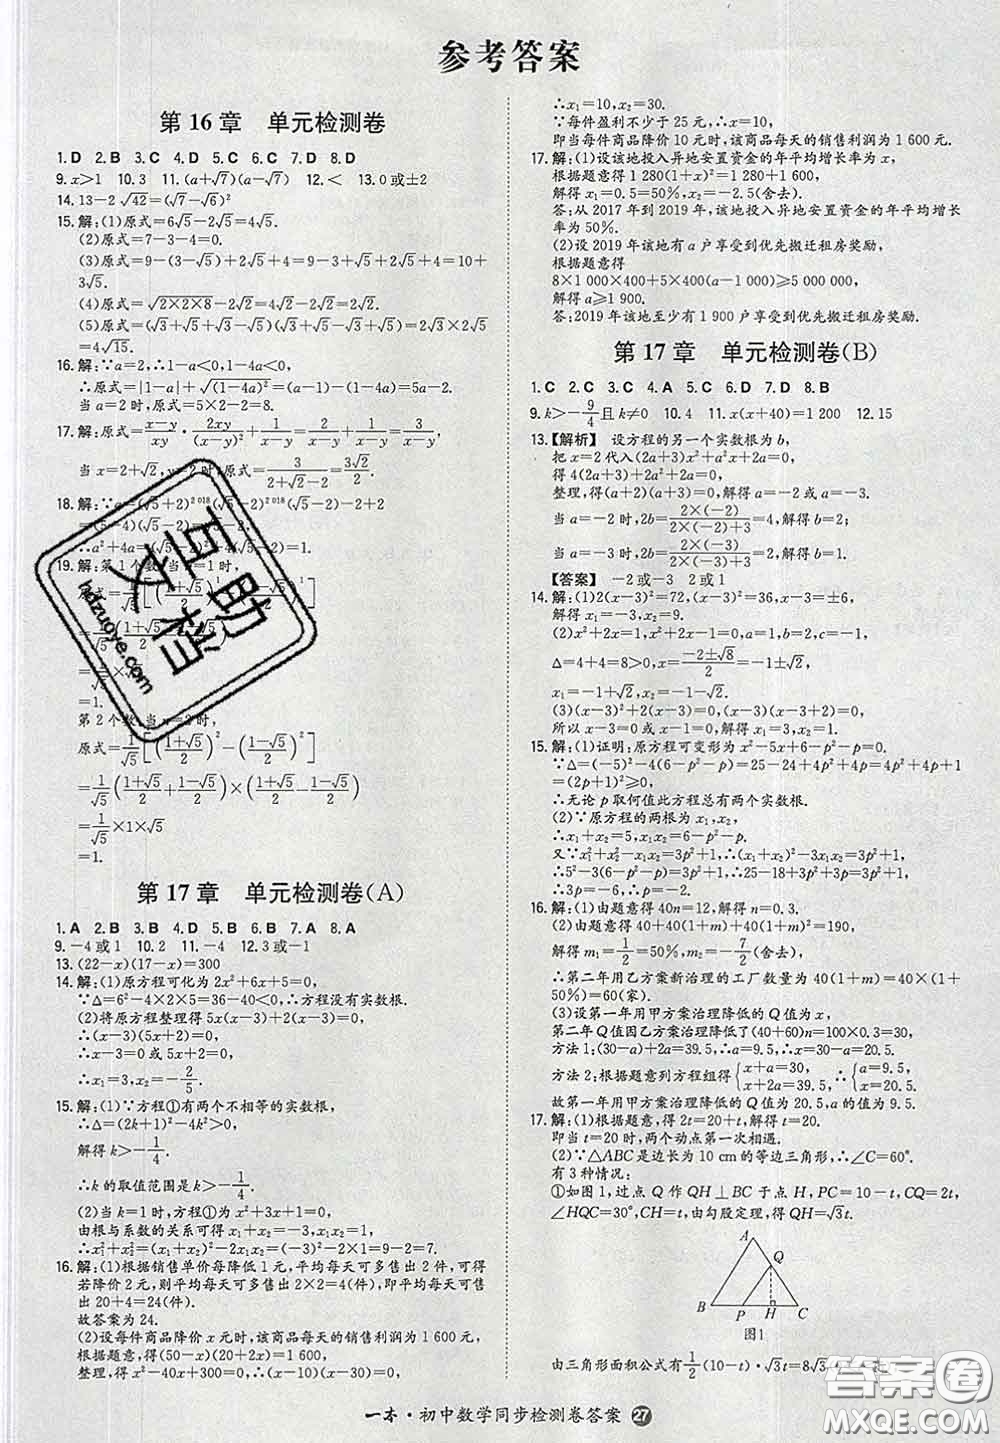 参考答案
第16章 单元检测卷
1.D 2.B 3.C 4.D 5.C 6.C 7.D 8.D
9.x>1 10.3 11.(a+√7)(a-√7) 12.< 13.0或±2
14.13-2√42=(√7-√6)²
15.解:(1)原式=6√5-2√5=4√5.
(2)原式=7-3-4=0.
(3)原式=9-(3-√5)+2√5+4=9-3+√5+2√5+4=10+
3√5.
(4)原式=√(2×2×8)-2√2=4√2-2√2=2√2.
(5)原式=(√3+√5+√3-√5)(√3+√5-√3+√5)=2√3×2√5
=4√15.
16.解:∵a=2,∴1-a<0,1-4a<0,
∴原式=|1-a|+√(1-4a)²=-(1-a)-(1-4a)=5a-2.
当a=2时,原式=5×2-2=8.
17.解:原式=(x-y)/xy·2xy/(x-y)²+1/(x-y)=2/(x-y)+1/(x-y)=3/(x-y),
当x=2+√2,y=2时,原式=3/(2+√2-2)=3√2/2.
18.解:∵a=(√5+2)²⁰¹⁸(√5-2)²⁰¹⁸(√5-2)-2+2
=(5-4)(√5-2)=√5-2.
∴a²+4a=(√5-2)²+4(√5-2)=1.
19.解:第1个数,当n=1时,
原式=1/√5[(1+√5)/2-(1-√5)/2]
=1/√5×√5
=1.
第2个数,当n=2时,
原式=1/√5[((1+√5)/2)²-((1-√5)/2)²]
=1/√5((1+√5)/2+(1-√5)/2)×((1+√5)/2-(1-√5)/2)
=1/√5×1×√5
=1.
第17章 单元检测卷(A)
1.A 2.B 3.B 4.D 5.B 6.B 7.A 8.A
9.-4或1 10.2 11.-4 12.3或-1
13.(22-x)(17-x)=300
14.解:(1)原方程可化为2x²+6x+5=0,
∵Δ=6²-4×2×5=36-40<0,∴方程没有实数根.
(2)将原方程整理得5x(x-3)+2(x-3)=0,
∴(x-3)(5x+2)=0,
∴x-3=0或5x+2=0,
∴x₁=3,x₂=-2/5.
15.解:(1)∵方程①有两个不相等的实数根,
∴Δ=(2k+1)²-4k²>0,
解得k>-1/4.
∴k的取值范围是k>-1/4.
(2)当k=1时,方程①为x²+3x+1=0,
由根与系数的关系可得x₁+x₂=-3,x₁x₂=1,
∴x₁²+x₂²=(x₁+x₂)²-2x₁x₂=(-3)²-2×1=9-2=7.
16.解:(1)根据销售单价每降低1元,平均每天可多售出2件,可得
若降价2元,则平均每天可多售出2×2=4(件),即平均每天可售
出20+4=24(件).
故答案为24.
(2)设每件商品降价x元时,该商品每天的销售利润为1 600元,
根据题意,得(50-x)(20+2x)=1 600,
整理,得x²-40x+300=0,
∴x₁=10,x₂=30.
∵每件盈利不少于25元,∴x=10,
即当每件商品降价10元时,该商品每天的销售利润为1 600元.
17.解:(1)设该地投入异地安置资金的年平均增长率为x,
根据题意得1 280(1+x)²=1 280+1 600,
解得x₁=0.5=50%,x₂=-2.5(舍去).
答:从2017年到2019年,该地投入异地安置资金的年平均增长
率为50%.
(2)设2019年该地有a户享受到优先搬迁租房奖励,
根据题意得
8×1 000×400+5×400(a-1 000)≥5 000 000,
解得a≥1 900.
答:2019年该地至少有1 900户享受到优先搬迁租房奖励.
第17章 单元检测卷(B)
1.C 2.C 3.C 4.A 5.C 6.D 7.D 8.B
9.k>-9/4且k≠0 10.4 11.x(x+40)=1 200 12.15
13.【解析】 设方程的另一个实数根为b,
把x=2代入(2a+3)x²+a²x+2a=0,
得4(2a+3)+2a²+2a=0,
整理,得(a+2)(a+3)=0,解得a=-2或a=-3,
当a=-2时,2b=2×(-2)/(2×(-2)+3)=4,解得b=2;
当a=-3时,2b=2×(-3)/(2×(-3)+3)=2,解得b=1.
【答案】 -2或-3 2或1
14.解:(1)2(x-3)²=72,(x-3)²=36,x-3=±6,
解得x₁=-3,x₂=9.
(2)x²+2x=1,x²+2x-1=0,a=1,b=2,c=-1,
Δ=4+4=8>0,x=(-2±√8)/2=-1±√2,
x₁=-1+√2,x₂=-1-√2.
(3)(x-3)²+2(x-3)=0,(x-3)(x-3+2)=0,
所以x-3=0或x-1=0,解得x₁=3,x₂=1.
15.解:(1)证明:原方程可变形为x²-5x+6-p²-p=0.
∵Δ=(-5)²-4(6-p²-p)=25-24+4p²+4p=4p²+4p+1
=(2p+1)²≥0,
∴无论p取何值此方程总有两个实数根.
(2)∵原方程的两根为x₁,x₂,
∴x₁+x₂=5,x₁x₂=6-p²-p.
又∵x₁²+x₂²-x₁x₂=3p²+1,∴(x₁+x₂)²-3x₁x₂=3p²+1,
∴5²-3(6-p²-p)=3p²+1,∴25-18+3p²+3p=3p²+1,
∴3p=-6,∴p=-2.
16.解:(1)由题意得40n=12,解得n=0.3.
(2)由题意得40+40(1+m)+40(1+m)²=190,
解得m₁=1/2=50%,m₂=-7/2(舍去),
∴第二年用乙方案新治理的工厂数量为40(1+m)=40(1+
50%)=60(家).
(3)设第一年用甲方案治理降低的Q值为x,
第二年Q值因乙方案治理降低了(40+60)n=100×0.3=30,
方法1:(30-a)+2a=39.5,∴a=9.5,∴x=30-a=20.5.
方法2:根据题意列方程组得{x+a=30,x+2a=39.5,∴{a=9.5,x=20.5.
故第一年用甲方案治理降低的Q值为20.5,a的值为9.5.
17.解:(1)根据题意,得2t=20+t,解得t=20.
即当t=20时,两个动点第一次相遇.
(2)∵△ABC是边长为10 cm的等边三角形,∴∠C=60°.
有3种情况:
①如图1,过点Q作QH⊥BC于点H,PC=10-t,CQ=2t,
∠HQC=30°,CH=t,由勾股定理,得QH=√3t.
A
Q
B P H C
图1
由三角形面积公式有1/2(10-t)·√3t=8√3
一本·初中数学同步检测卷答案 27
互助文档
hdzuoye.com
答案圈
MXQE.COM